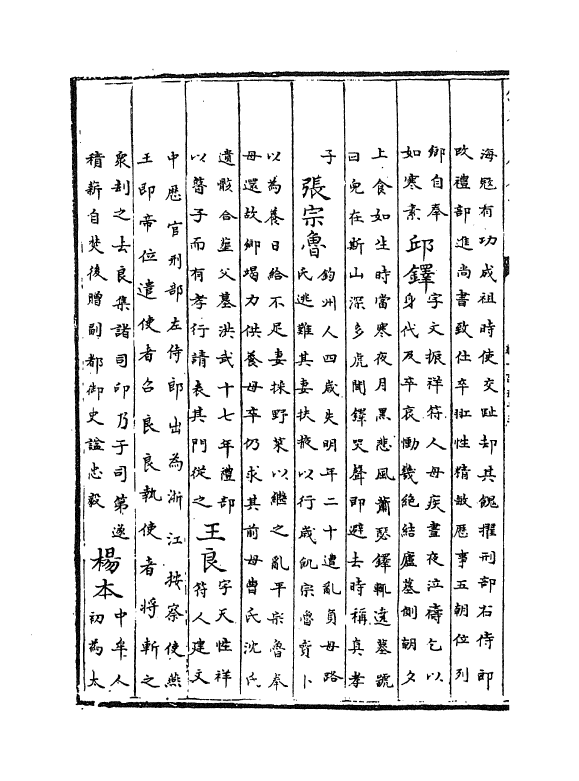 海冦有功成祖時使交趾却其餽擢刑部右侍郎
改禮部進尚書致仕卒羾性精敏歴事五朝位列
卿自奉
如寒素
邱鐸
字文振祥符人母疾晝夜泣禱乞以
身代及卒哀慟幾絶結廬墓側朝夕
上食如生時當寒夜月黑悲風蕭瑟鐸輒遶墓號
曰兒在斯山深多虎聞鐸哭聲即避去時稱真孝
子
張宗魯
鈞州人四歳失明年二十遭亂負母路
氏逃難其妻扶掖以行歳飢宗魯賣卜
以為養日給不足妻採野菜以繼之亂平宗魯奉
母還故鄉竭力供養母卒仍求其前母曹氏沈氏
遺骸合塟父墓洪武十七年禮部
以瞽子而有孝行請表其門從之
王良
字天性祥
符人建文
中歴官刑部左侍郎出為浙江按察使燕
王即帝位遣使者召良良執使者將斬之
衆刦之去良集諸司印乃于司第遂
積薪自焚後贈副都御史諡忠毅
楊本
中牟人
初為太